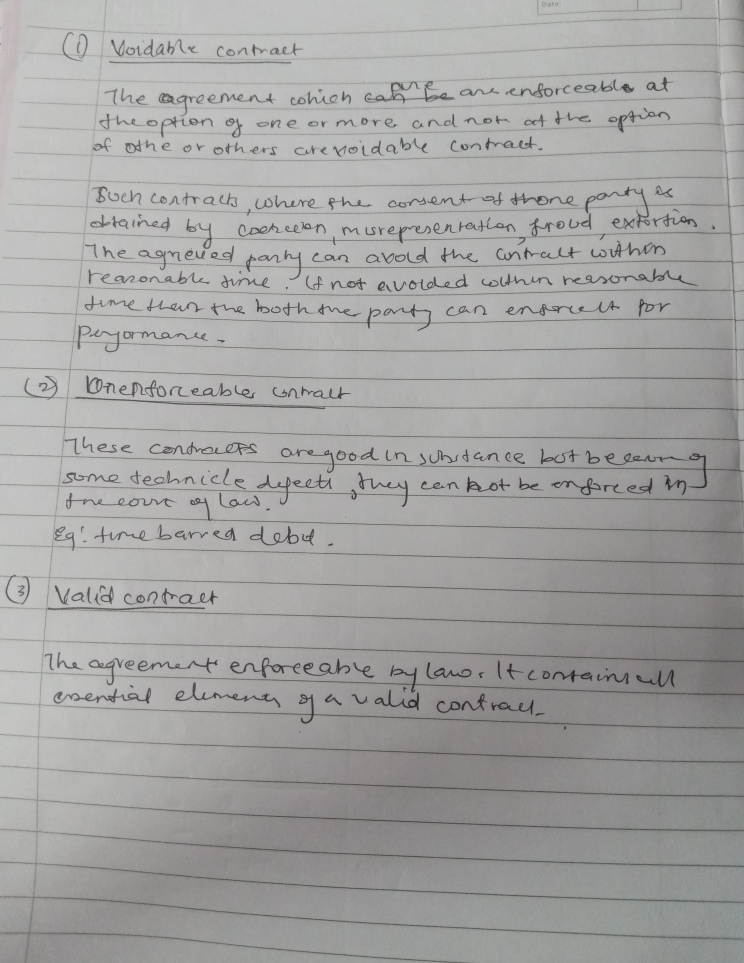 Date
(1) Voidable contract
The agreement which can be are are enforceable at
the option of one or more and not at the option
of othe or others are voidable contract.
Such contracts, where the consent of thone party is
obtained by coercion, misrepresentation, froud, extortion.
The agrieved party can avoid the contract within
reasonable time. If not avoided within reasonable
time then the both the party can enforce it for
performance.
(2) Unenforceable contract
These contracts are good in substance but because of
some technicle defects, they can not be enforced in
the court of law.
Eg: time barred debt.
(3) Valid contract
The agreement enforceable by law. It contains all
essential elements of a valid contract.